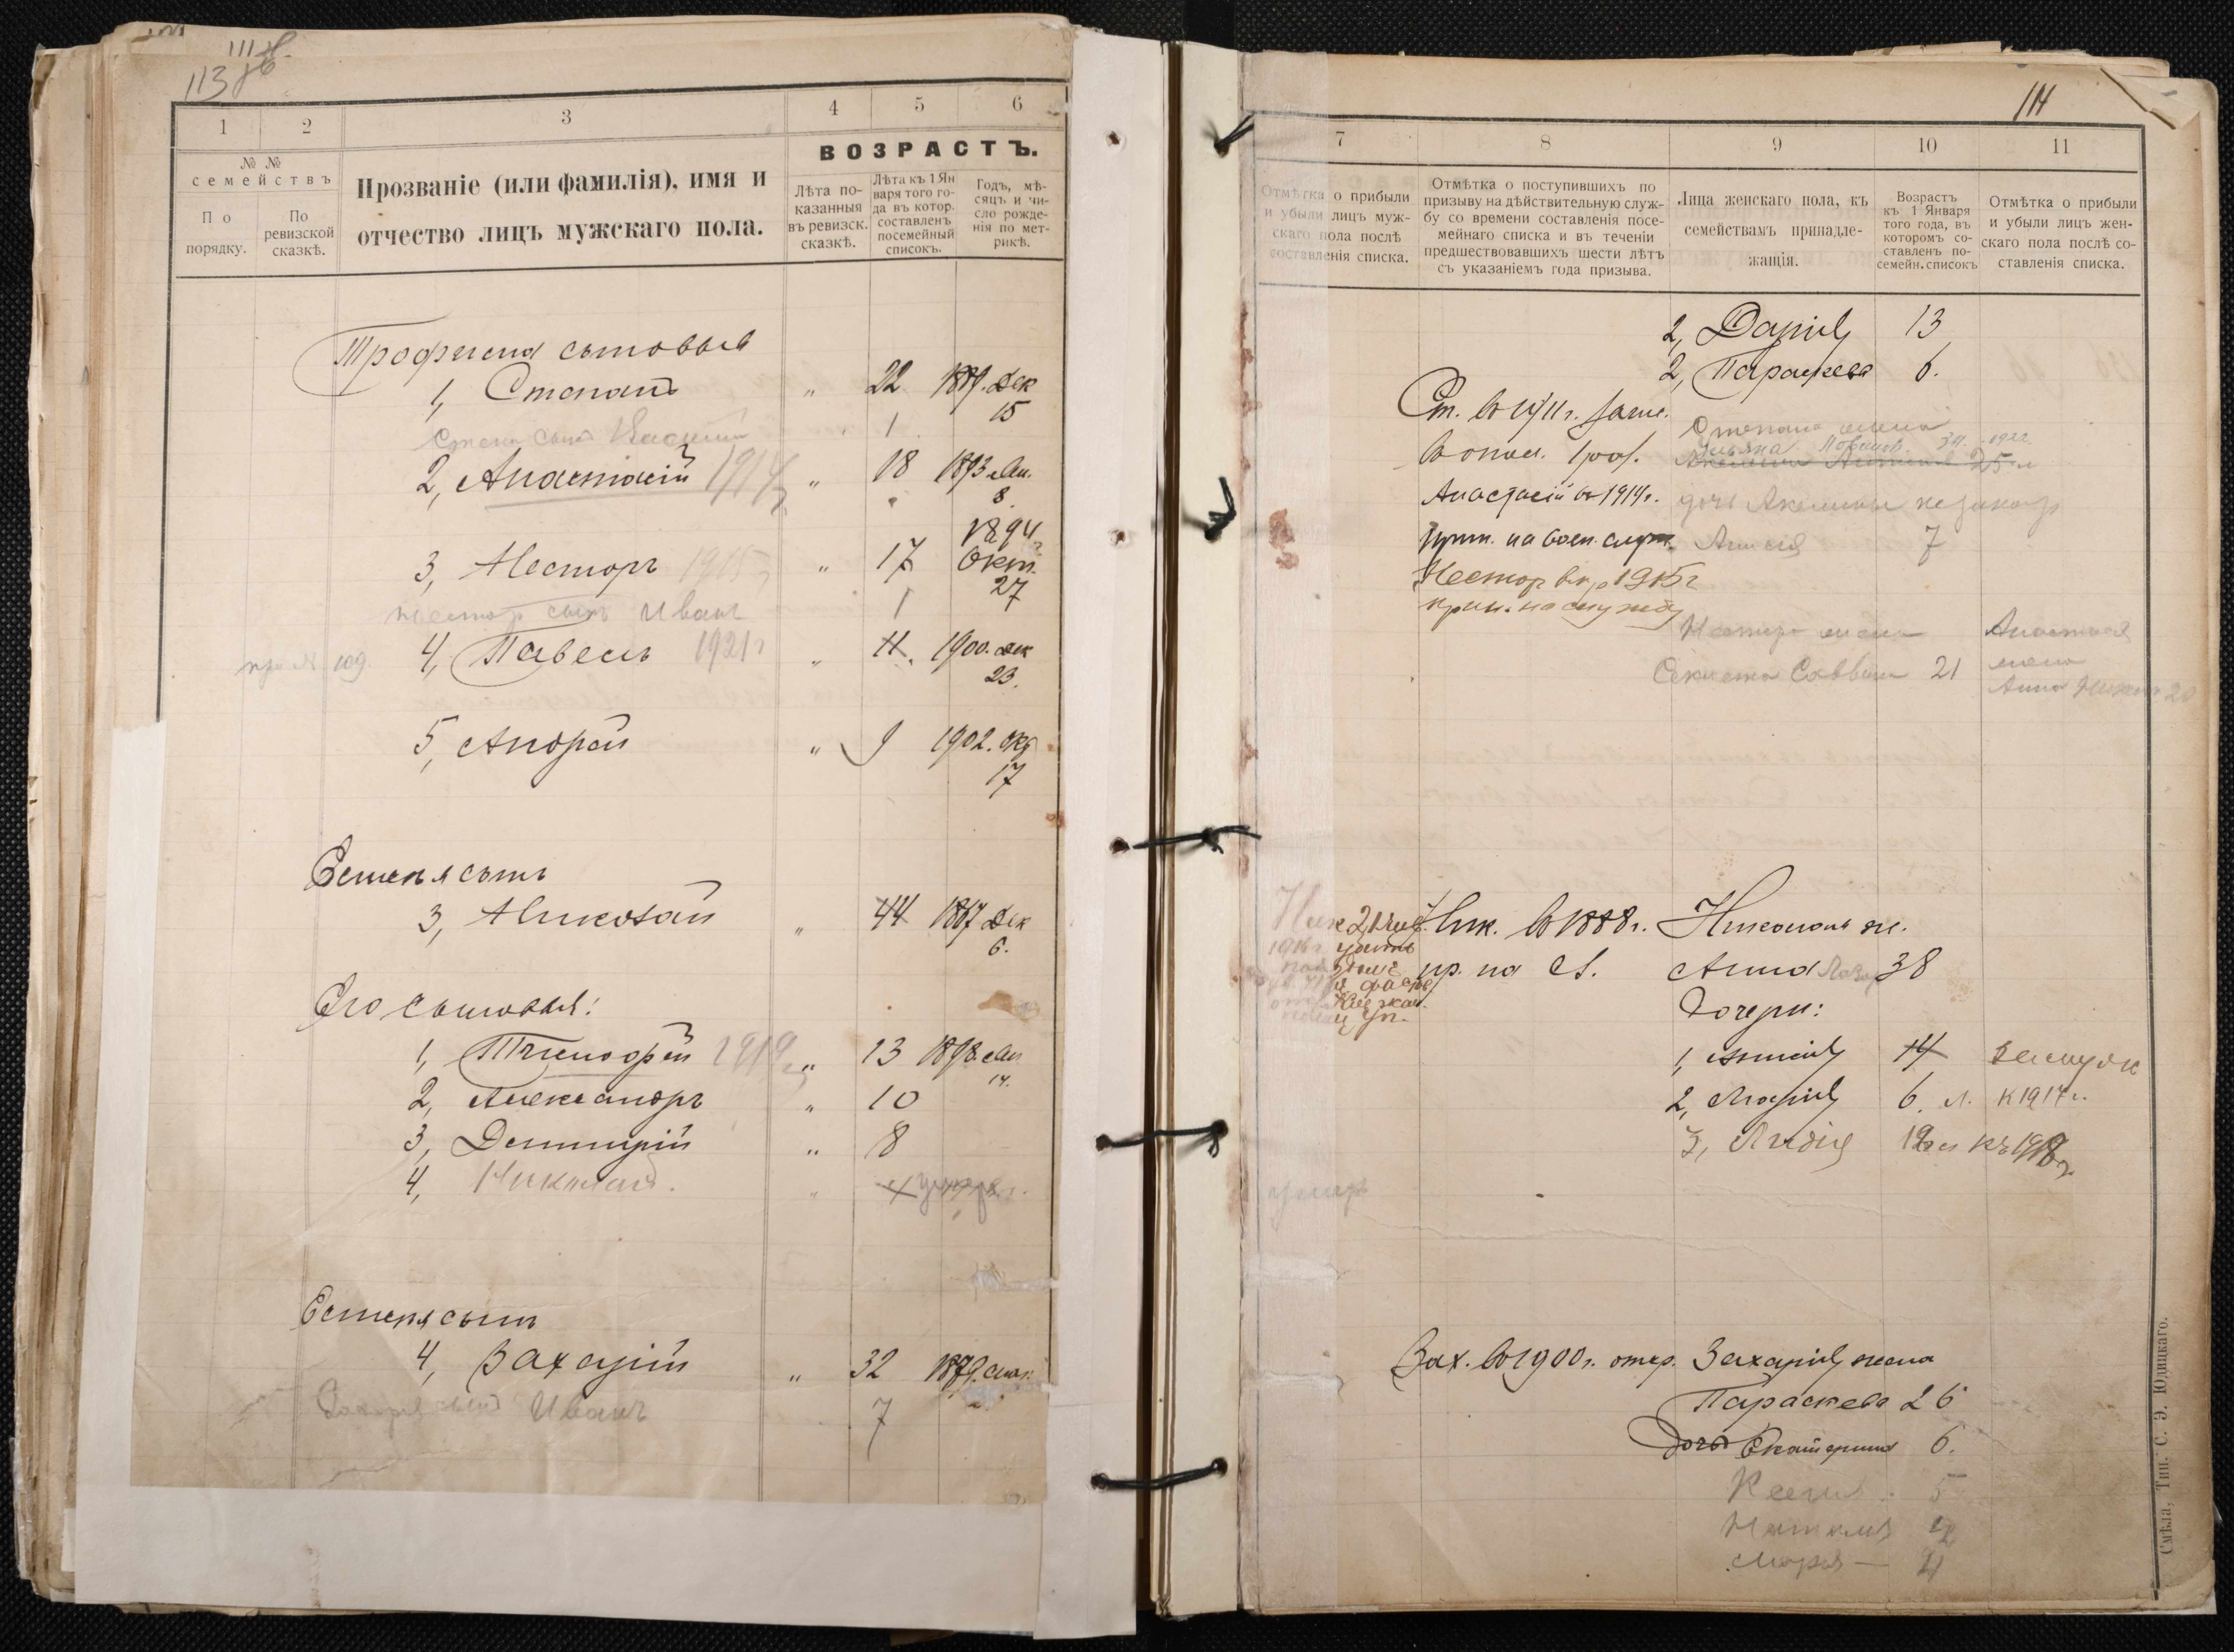 111 об.
113 об
1
2
3
4
5
6
№ №
семействъ
По
порядку.
По
ревизской
сказкѣ.
Прозваніе (или фамилія), имя и
отчество лицъ мужскаго пола.
ВОЗРАСТЪ.
Лѣта по-
казанныя
въ ревизск.
сказкѣ.
Лѣта къ 1 Ян
варя того го-
да въ котор.
составленъ
посемейный
списокъ.
Годъ, мѣ-
сяцъ и чи-
сло рожде-
нія по мет-
рикѣ.
Трофима сыновья
1, Степанъ " 22 1889. Дек
15
Степ. сынъ Василій 1
2, Анастасій 1914 " 18 1893 Ян.
8.
1894
3, Несторъ 1915 " 17 Окт.
27
Нестор сынъ Иванъ 1
109. 4, Павелъ 1921 г " 11. 1900. дек
23.
5, Андрей " 9 1902. окт
17
Евгенія сынъ
3, Николай " 44 1867 Дек
6.
Его сыновья:
1, Тимофей 1919 " 13 1898 Ян
14.
2, Александръ " 10
3, Дмитрій " 8
4, Николай. " умеръ
Евгенія сынъ
4, Захарій " 32 1879.
Захарія сынъ Иванъ 7
114
7
8
9
10
11
Отмѣтка о прибыли
и убыли лицъ муж-
скаго пола послѣ
составленія списка.
Отмѣтка о поступившихъ по
призыву на дѣйствительную служ-
бу со времени составленія посе-
мейнаго списка и въ теченіи
предшествовавшихъ шести лѣтъ
съ указаніемъ года призыва.
Лица женскаго пола, къ
семействамъ принадле-
жащія.
Возрастъ
къ 1 Января
того года, въ
которомъ со-
ставленъ по-
семейн. списокъ
Отмѣтка о прибыли
и убыли лицъ жен-
скаго пола послѣ со-
ставленія списка.
2, Дарія 13
2, Параскева 6.
Ст. въ 1911 г. зачис.
Степана жена
в опол. 1 раз.
1922
25
Анастасій въ 1914 г.
дочь Акелины
прин. на воен. служ.
Анисія 7
Нестор в 1915 г
прин. на службу
Нестора жена
Анастасія
жена
Саввина 21
Анна 20
Ник. въ 1888 г.
Николая ж.
пр. на
Анна 38
Дочери:
1, Анисія 14 замуж
2, Марія 6 л. к 1917 г.
3, Лидія къ 1918 г.
умеръ
Зах. въ 1900 г. отср.
Захарія жена
Параскева 26
Дочь Екатерина 6.
Ксенія 5
Наталія 2
Марія —
Смѣла, Тип. С. Э. Юдицкаго.